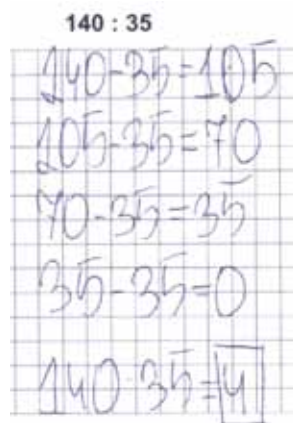 140 : 35
140-35=105
105-35=70
70-35=35
35-35=0
140:35=4